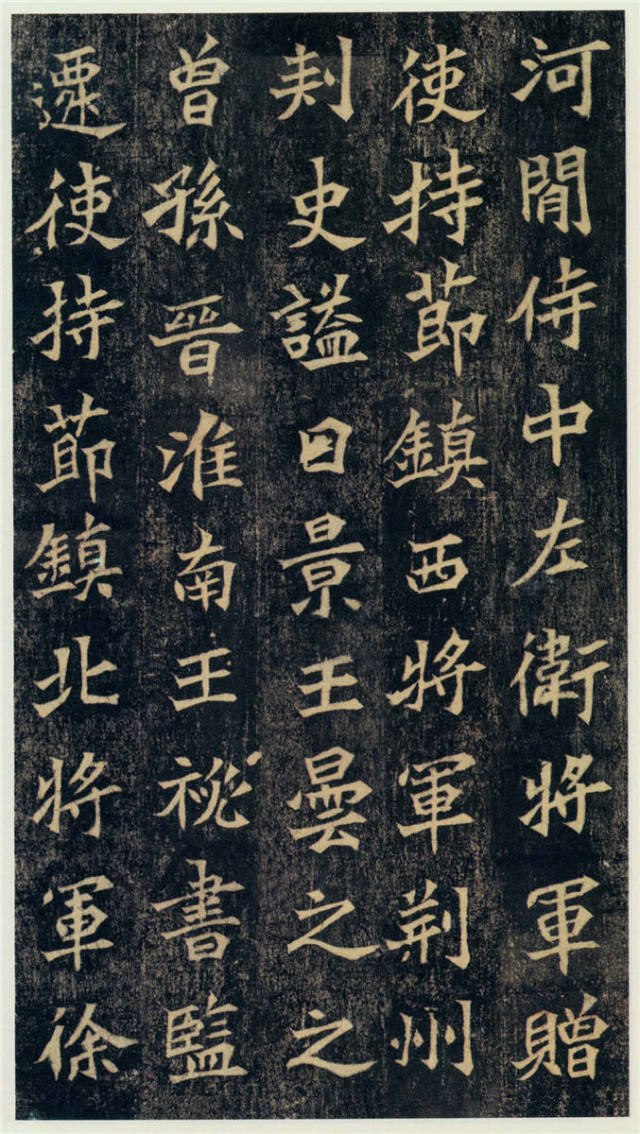 河間侍中左衛將軍贈
使持節鎮西將軍荊州
刾史謚曰景王曇之之
曾孫晉淮南王祕書監
遷使持節鎮北將軍徐